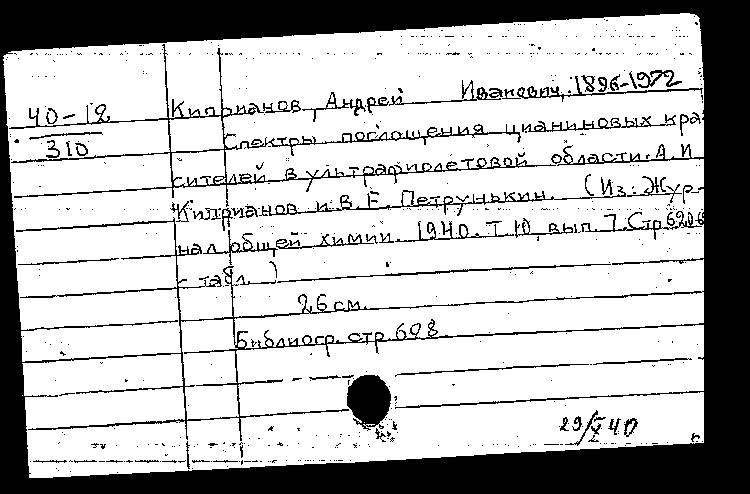 40-12
310
Киприанов, Андрей Иванович, 1896-1972
Спектры поглощения цианиновых кра-
сителей в ультрафиолетовой области. А. И.
Киприанов и В. Е. Петрунькин. (Из: Жур-
нал общей химии. 1940. Т. 10, вып. 7. Стр.
табл.)
26 см.
Библиогр. стр. 608
29/X 40